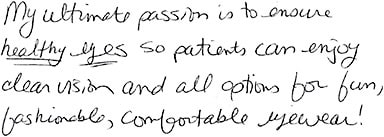 My ultimate passion is to ensure
healthy eyes so patients can enjoy
clear vision and all options for fun,
fashionable, comfortable eyewear!